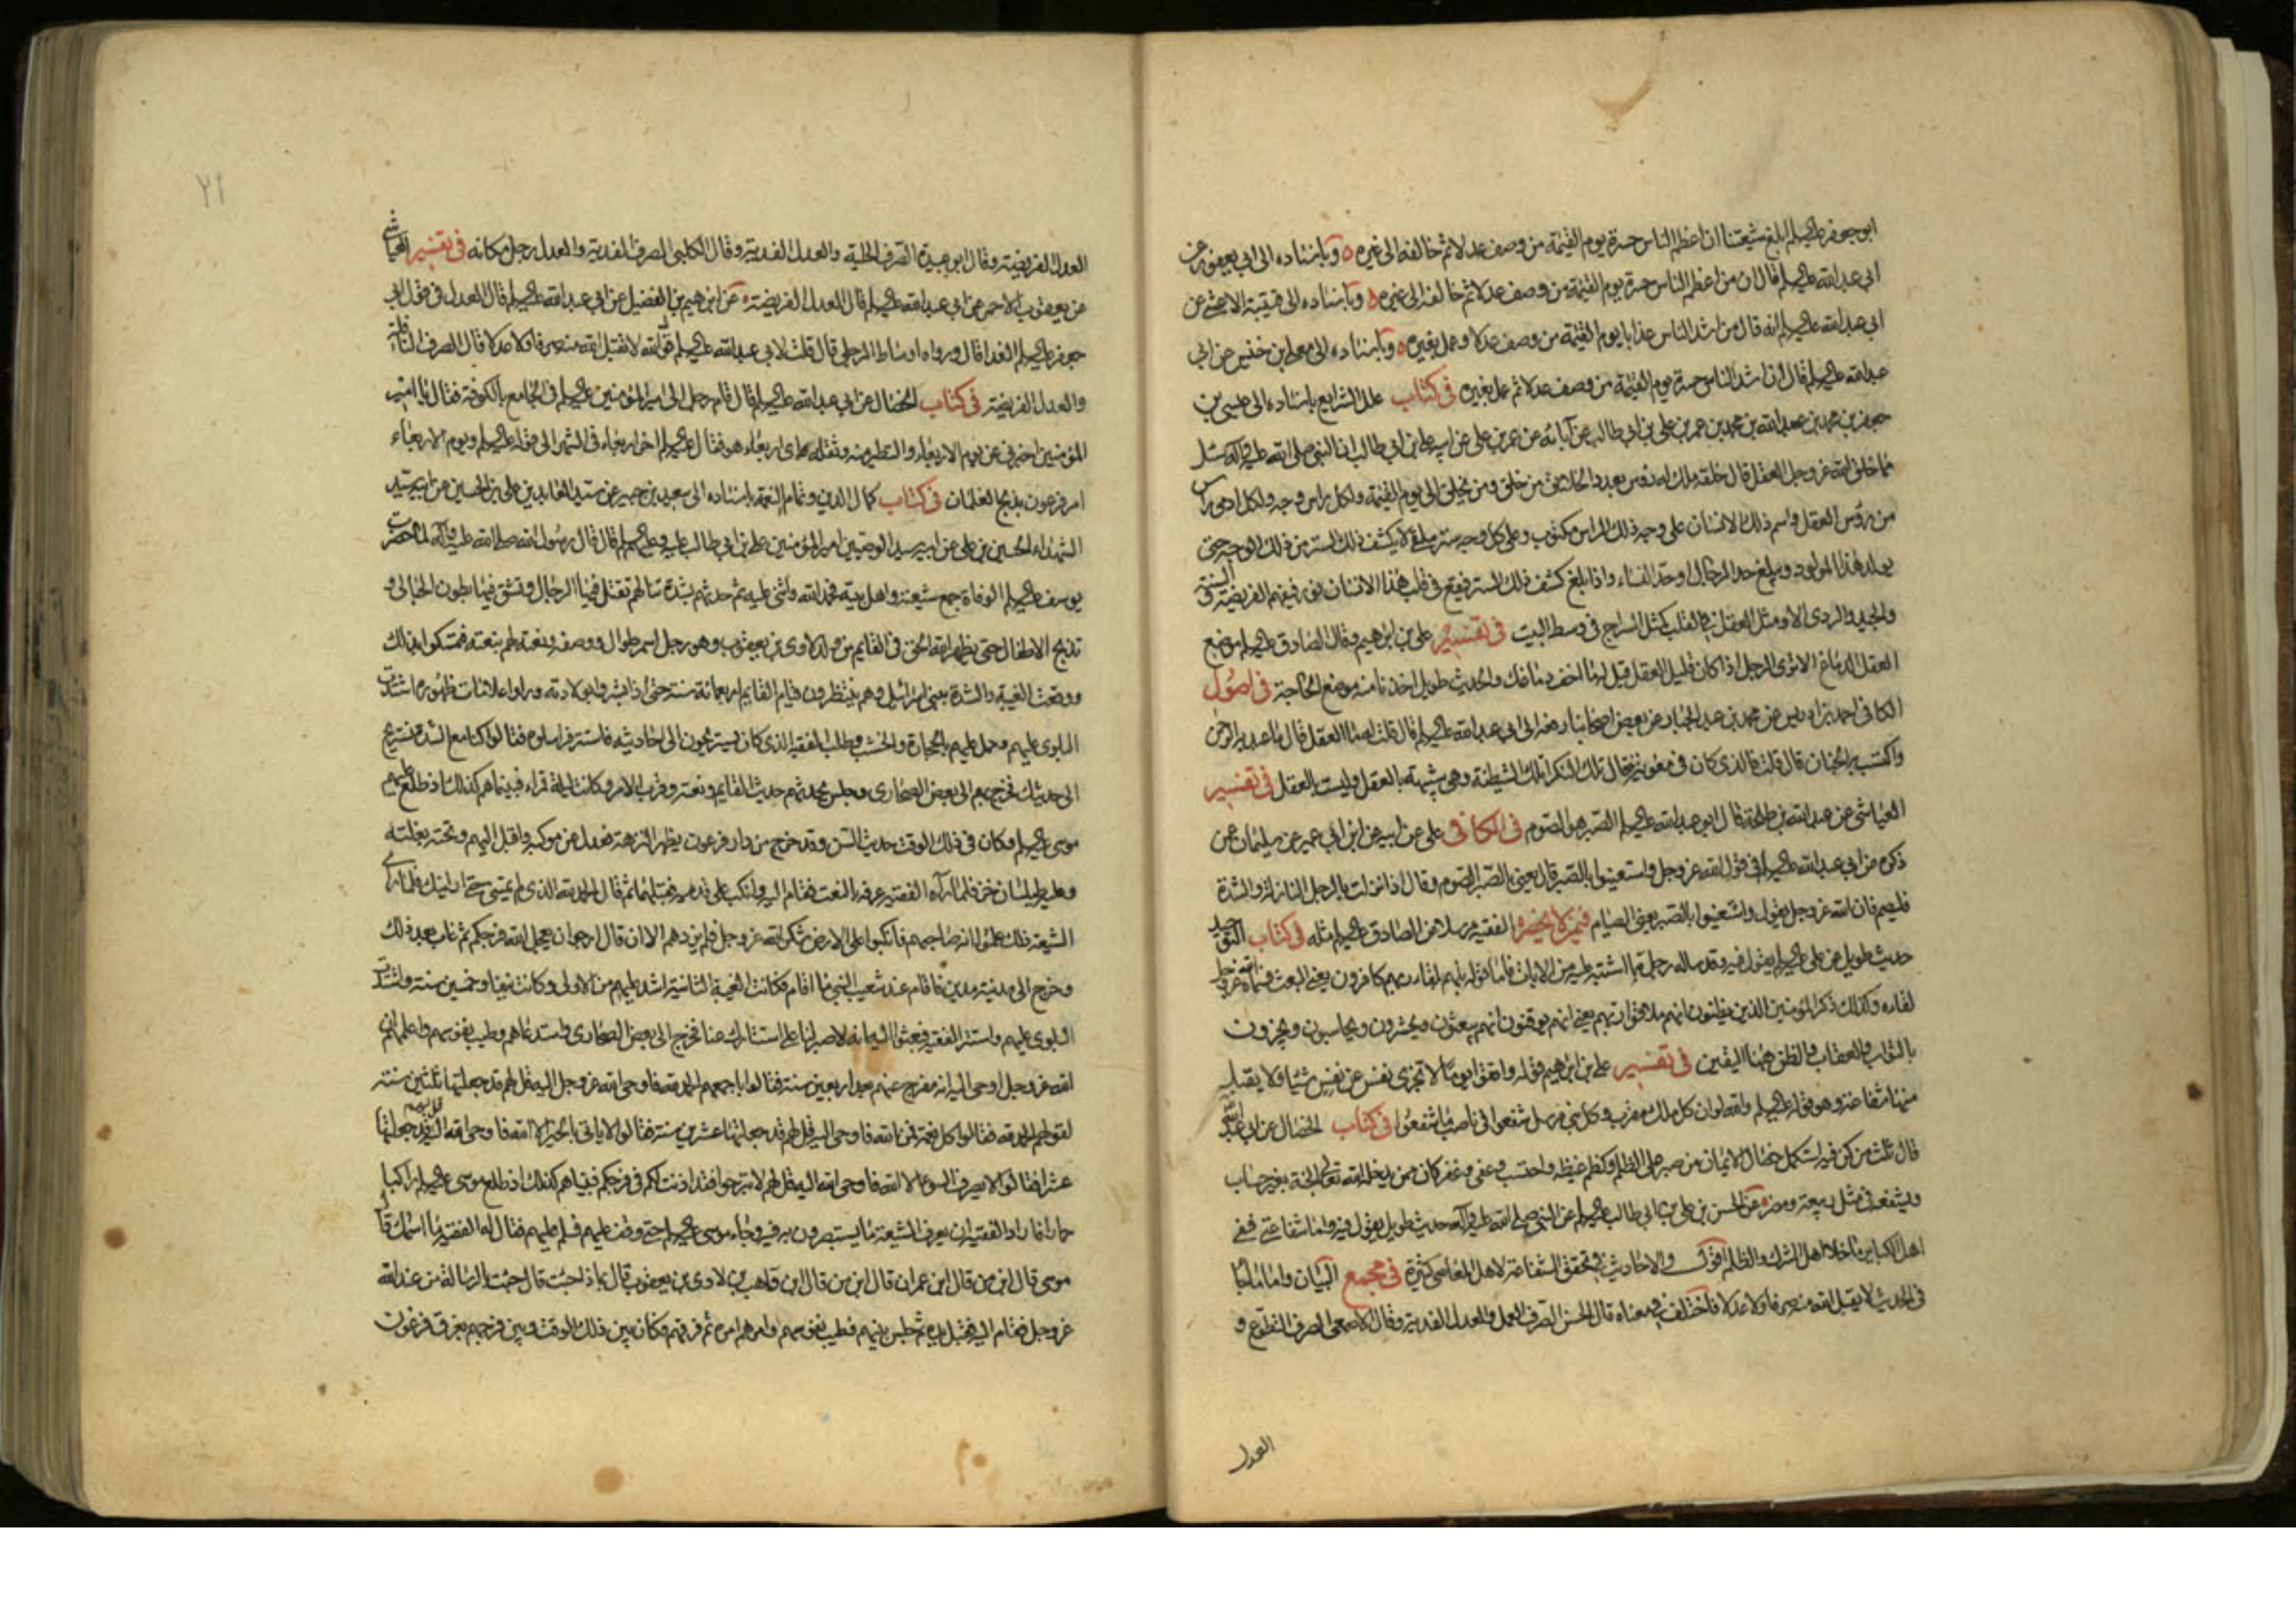 ابوجعفر عليه السلم ابلغ شيعتنا ان اعظم الناس حسرة يوم القيمة من وصف عدلا ثم خالفه الى غيره ٥ وباسناده الى ابى يعفور عن
ابى عبدالله عليه السلم قال ان من اعظم الناس حسرة يوم القيمة من وصف عدلا ثم خالفه الى غيره ٥ وباسناده الى قتيبة الاعشى عن
ابى عبدالله عليه السلم انه قال من اشد الناس عذابا يوم القيمة من وصف عدلا وعمل بغيره ٥ وباسناده الى معلى بن خنيس عن ابى
عبدالله عليه السلم قال ان اشد الناس حسرة يوم القيمة من وصف عدلا ثم عمل بغيره فى كتاب علل الشرايع باسناده الى عيسى بن
جعفر بن محمد بن عبدالله بن محمد بن عمر بن على بن ابى طالب عن آبائه عن عمر بن على عن ابيه على بن ابى طالب ان النبى صلى الله عليه وآله سئل
مما خلق الله عز وجل العقل قال خلقه ملك له رؤس بعدد الخلائق من خلق ومن يخلق الى يوم القيمة ولكل راس وجه ولكل ادمى راس
من رؤس العقل واسم ذلك الانسان على وجه ذلك الراس مكتوب وعلى كل وجه ستر ملقى لا يكشف ذلك الستر من ذلك الوجه حتى
يولد هذا المولود ويبلغ حد الرجال او حد النساء واذا بلغ كشف ذلك الستر فيقع فى قلب هذا الانسان نور فيفهم الفريضة والسنة
والجيد والردى الا ومثل العقل فى القلب كمثل السراج فى وسط البيت فى تفسير على بن ابرهيم وقال الصادق عليه السلم موضع
العقل الدماغ الا ترى الرجل اذا كان قليل العقل قيل له ما اخف دماغك والحديث طويل اخذنا منه موضع الحاجة فى اصول
الكافى احمد بن ادريس عن محمد بن عبد الجبار عن بعض اصحابنا رفعه الى ابى عبدالله عليه السلم قال قلت له ما العقل قال ما عبد به الرحمن
واكتسب به الجنان قال قلت فالذى كان فى معوية فقال تلك النكراء تلك الشيطنة وهى شبيهة بالعقل وليست بالعقل فى تفسير
العياشى عن عبدالله بن طلحة قال ابو عبدالله عليه السلم الصبر هو الصوم فى الكافى على عن ابيه عن ابن ابى عمير عن سليمان عمن
ذكره عن ابى عبدالله عليه السلم فى قول الله عز وجل واستعينوا بالصبر قال يعنى بالصبر الصوم وقال اذا نزلت بالرجل النازلة والشدة
فليصم فان الله عز وجل يقول واستعينوا بالصبر يعنى الصيام فيمن لا يحضره الفقيه مرسلا عن الصادق عليه السلم مثله فى كتاب التوحيد
حديث طويل عن على عليه السلم يقول فيه وقد ساله رجل عما اشتبه عليه من الايات فاما قوله بل هم بلقاء ربهم كافرون يعنى البعث فسماه الله عز وجل
لقاءه وكذلك ذكر المؤمنين الذين يظنون انهم ملاقوا ربهم يعنى انهم يوقنون انهم يبعثون ويحشرون ويحاسبون ويجزون
بالثواب والعقاب والظن ههنا اليقين فى تفسير على بن ابرهيم قوله واتقوا يوما لا تجزى نفس عن نفس شيئا ولا يقبل
منها شفاعة وهو قوله عليه السلم والله لو ان كل ملك مقرب وكل نبى مرسل شفعوا فى ناصب ما شفعوا فى كتاب الخصال عن ابى عبدالله
قال ثلث من كن فيه استكمل خصال الايمان من صبر على الظلم وكظم غيظه واحتسب وعفى وغفر كان ممن يدخله الله تعالى الجنة بغير حساب
ويشفعه فى مثل ربيعة ومضر عن الحسن بن على بن ابى طالب عليه السلم عن النبى صلى الله عليه وآله حديث طويل يقول فيه واما شفاعتى ففى
اهل الكبائر ما خلا اهل الشرك والظلم اقول والاحاديث فى تحقق الشفاعة لاهل المعاصى كثيرة فى مجمع البيان واما ما جاء
فى الحديث لا يقبل الله منه صرفا ولا عدلا فاختلف فى معناه قال الحسن الصرف العمل والعدل الفدية وقال الاصمعى الصرف التطوع و
العدل
٢١
العدل الفريضة وقال ابو عبيدة الصرف الحيلة والعدل الفدية وقال الكلبى الصرف الفدية والعدل رجل مكانه فى تفسير العياشى
عن يعقوب الاحمر عن ابى عبدالله عليه السلم قال العدل الفريضة عن ابرهيم بن الفضيل عن ابى عبدالله عليه السلم قال العدل فى قول ابى
جعفر عليه السلم الفداء قال ورواه اسباط الزطى قال قلت لابى عبدالله عليه السلم قول الله لا يقبل الله منه صرفا ولا عدلا قال الصرف النافلة
والعدل الفريضة فى كتاب الخصال عن ابى عبدالله عليه السلم قال قام رجل الى امير المؤمنين عليه السلم فى الجامع بالكوفة فقال يا امير
المؤمنين اخبرنى عن يوم الاربعاء والتطير منه وثقله واى اربعاء هو فقال عليه السلم اخر اربعاء فى الشهر الى قوله عليه السلم ويوم الاربعاء
امر فرعون بذبح الغلمان فى كتاب كمال الدين وتمام النعمة باسناده الى سعيد بن جبير عن سيد العابدين على بن الحسين عن ابيه سيد
الشهداء الحسين بن على عن ابيه سيد الوصيين امير المؤمنين على بن ابى طالب عليه وعليهم السلم قال قال رسول الله صلى الله عليه وآله لما حضرت
يوسف عليه السلم الوفاة جمع شيعته واهل بيته فحمد الله واثنى عليه ثم حدثهم بشدة تنالهم تقتل فيها الرجال وتشق فيها بطون الحبالى و
تذبح الاطفال حتى يظهر الله الحق فى القايم من ولد لاوى بن يعقوب وهو رجل اسمر طوال ووصفه ونعته لهم بنعته فتمسكوا بذلك
ووقعت الغيبة والشدة ببنى اسرائيل وهم ينتظرون قيام القايم اربعمائة سنة حتى اذا بشروا بولادته وراوا علامات ظهوره اشتدت
البلوى عليهم وحمل عليهم بالحجارة والخشب وطلب الفقيه الذى كان يستريحون الى احاديثه فاستتر فراسلوه فقالوا كنا مع الشدة نستريح
الى حديثك فخرج بهم الى بعض الصحارى وجلس يحدثهم حديث القايم ونعته وقرب الامر وكانت ليلة قمراء فبينا هم كذلك اذ طلع عليهم
موسى عليه السلم وكان فى ذلك الوقت حديث السن وقد خرج من دار فرعون يظهر النزهة فعدل عن موكبه واقبل اليهم وتحته بغلته
وعليه طيلسان خز فلما رآه الفقيه عرفه بالنعت فقام اليه وانكب على قدميه فقبلهما ثم قال الحمد لله الذى لم يمتنى حتى ارانيك فلما راى
الشيعة ذلك علموا انه صاحبهم فانكبوا على الارض شكرا لله عز وجل فلم يزدهم الا ان قال ارجو ان يعجل الله فرجكم ثم غاب بعد ذلك
وخرج الى مدينة مدين فاقام عند شعيب النبى ما اقام فكانت الغيبة الثانية اشد عليهم من الاولى وكانت نيفا وخمسين سنة واشتدت
البلوى عليهم واستتر الفقيه فبعثوا اليه انه لا صبر لنا على استتارك عنا فخرج الى بعض الصحارى واستدعاهم وطيب نفوسهم واعلمهم ان
الله عز وجل اوحى اليه انه مفرج عنهم بعد اربعين سنة فقالوا باجمعهم الحمد لله فاوحى الله عز وجل اليه قل لهم قد جعلتها ثلثين سنة
لقولهم الحمد لله فقالوا كل نعمة فمن الله فاوحى اليه قل لهم قد جعلتها عشرين سنة فقالوا لا ياتى بالخير الا الله فاوحى الله اليه قل لهم قد جعلتها
عشرا فقالوا لا يصرف السوء الا الله فاوحى الله اليه قل لهم لا تبرحوا فقد اذنت لكم فى فرجكم فبينا هم كذلك اذ طلع موسى عليه السلم راكبا
حمارا فاراد الفقيه ان يعرف الشيعة ما يستبصرون به فيه وجاء موسى عليه السلم حتى وقف عليهم فسلم عليهم فقال له الفقيه ما اسمك قال
موسى قال ابن من قال ابن عمران قال ابن من قال ابن قاهب بن لاوى بن يعقوب قال بماذا جئت قال جئت بالرسالة من عند الله
عز وجل فقام اليه فقبل يده ثم جلس بينهم فطيب نفوسهم وامرهم امره ثم فرقهم فكان بين ذلك الوقت وبين فرجهم بغرق فرعون